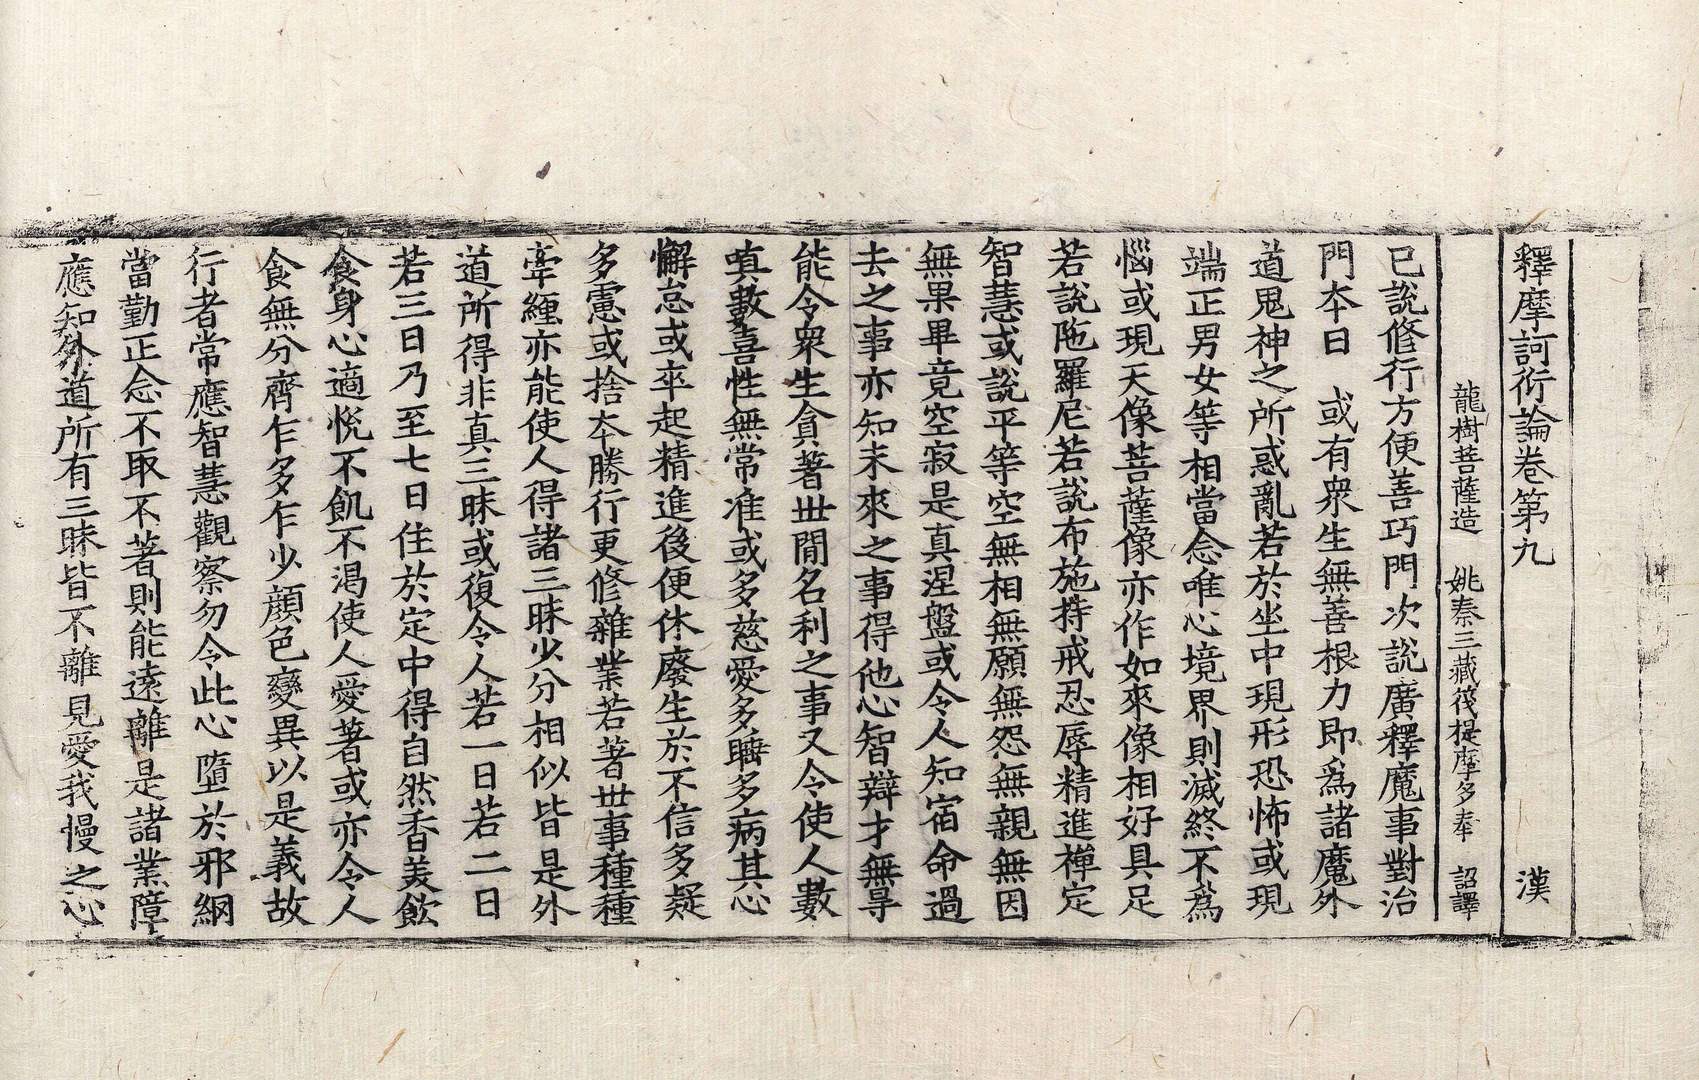 釋摩訶衍論卷第九　漢
龍樹菩薩造　姚秦三藏筏提摩多奉　詔譯
已說修行方便善巧門次說廣釋魔事對治
門夲曰　或有衆生無善根力即爲諸魔外
道鬼神之所惑亂若於坐中現形恐怖或現
端正男女等相當念唯心境界則滅終不爲
惱或現天像菩薩像亦作如來像相好具足
若說陁羅尼若說布施持戒忍辱精進禪定
智慧或說平等空無相無願無怨無親無因
無果畢竟空寂是真涅盤或令人知宿命過
去之事亦知未來之事得他心智辯才無㝵
能令衆生貪著丗間名利之事又令使人數
嗔數喜性無常准或多慈愛多睡多病其心
懈怠或卒起精進後便休廢生於不信多疑
多慮或捨夲勝行更修雜業若著丗事種種
牽纏亦能使人得諸三昧少分相似皆是外
道所得非真三昧或復令人若一日若二日
若三日乃至七日住於定中得自然香美飲
食身心適悅不飢不渴使人愛著或亦令人
食無分齊乍多乍少顔色變異以是義故
行者常應智慧觀察勿令此心墮於邪網
當勤正念不取不著則能遠離是諸業障
應知外道所有三昧皆不離見愛我慢之心